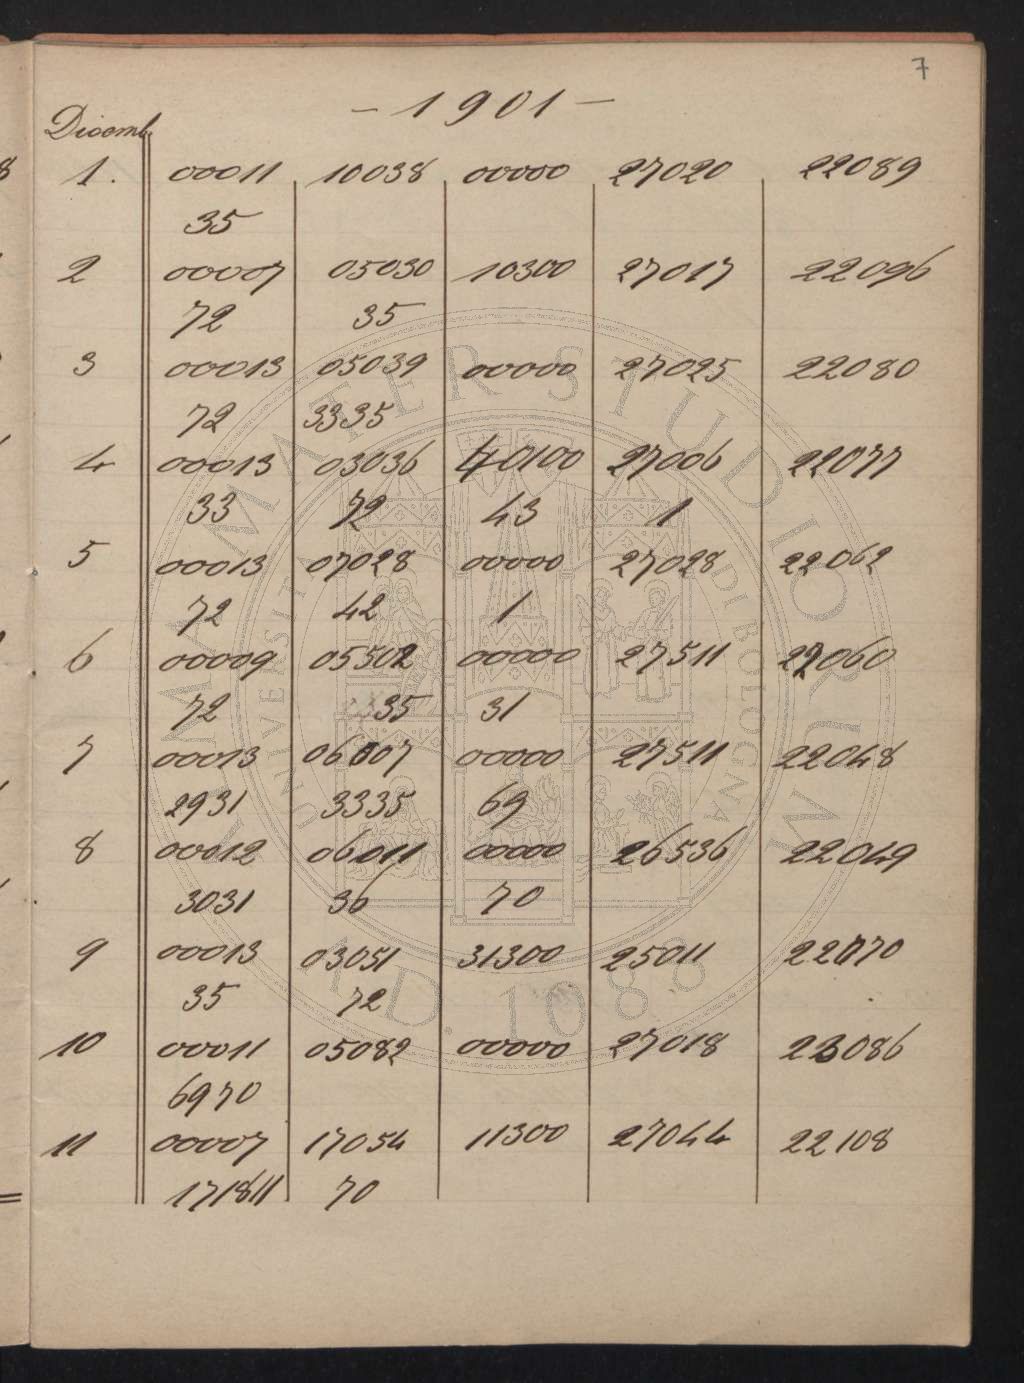 7
- 1901 -
Dicemb.
1. 00011 10038 00000 27020 22089
35
2 00007 05030 10300 27017 22096
72 35
3 00013 05039 00000 27025 22080
72 3335
4 00013 03036 40100 27006 22077
33 72 43 1
5 00013 07028 00000 27028 22062
72 42 1
6 00009 05502 00000 27511 22060
72 35 31
7 00013 06007 00000 27511 22048
2931 3335 69
8 00012 06011 00000 26536 22049
3031 36 70
9 00013 03051 31300 25011 22070
35 72
10 00011 05082 00000 27018 23086
6970
11 00007 17054 11300 27044 22108
171811 70
ALMA MATER STUDIORUM
UNIVERSITÀ DI BOLOGNA
A.D. 1088